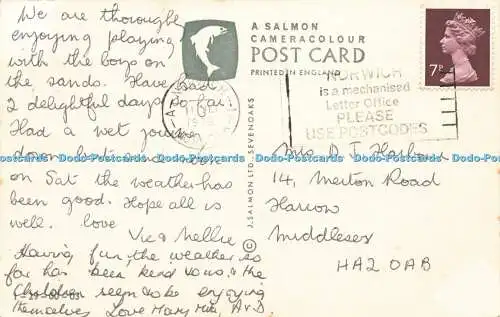 We are thoroughly
enjoying playing
with the boys on
the sands. Have had
2 delightful days so far.
Had a wet journey
down but since
on Sat the weather has
been good. Hope all is
well. love
Vic & Nellie
Having fun, the weather so
far has been kind to us & the
Children seem to be enjoying
themselves Love Mary
A SALMON
CAMERACOLOUR
POST CARD
PRINTED IN ENGLAND
J. SALMON LTD. SEVENOAKS ©
NORWICH
is a mechanised
Letter Office
PLEASE
USE POSTCODES
7P
Mrs D F
14, Merton Road
Harrow
Middlesex
HA2 0AB
Dodo-Postcards Dodo-Postcards Dodo-Postcards Dodo-Postcards Dodo-Postcards Dodo-Postcards